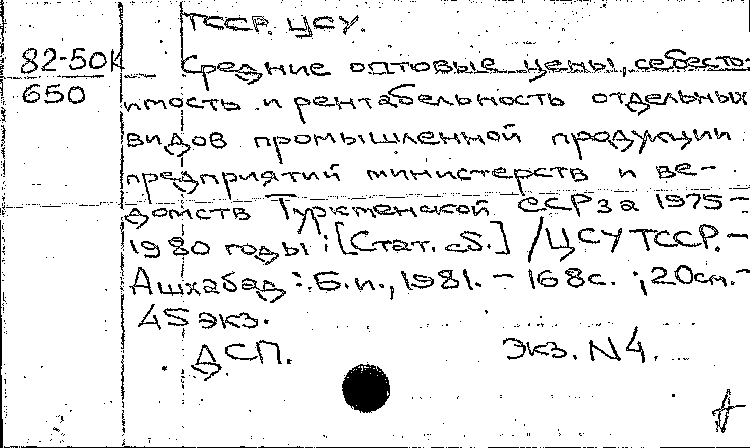 ТССР. ЦСУ.
82-50К
650
Средние оптовые цены, себесто-
имость и рентабельность отдельных
видов промышленной продукции
предприятий министерств и ве-
домств Туркменской ССР за 1975-
1980 годы : [Стат. сб.] / ЦСУ ТССР. -
Ашхабад : Б. и., 1981. - 168с. ; 20см. -
45 экз.
ДСП. Экз. N4.